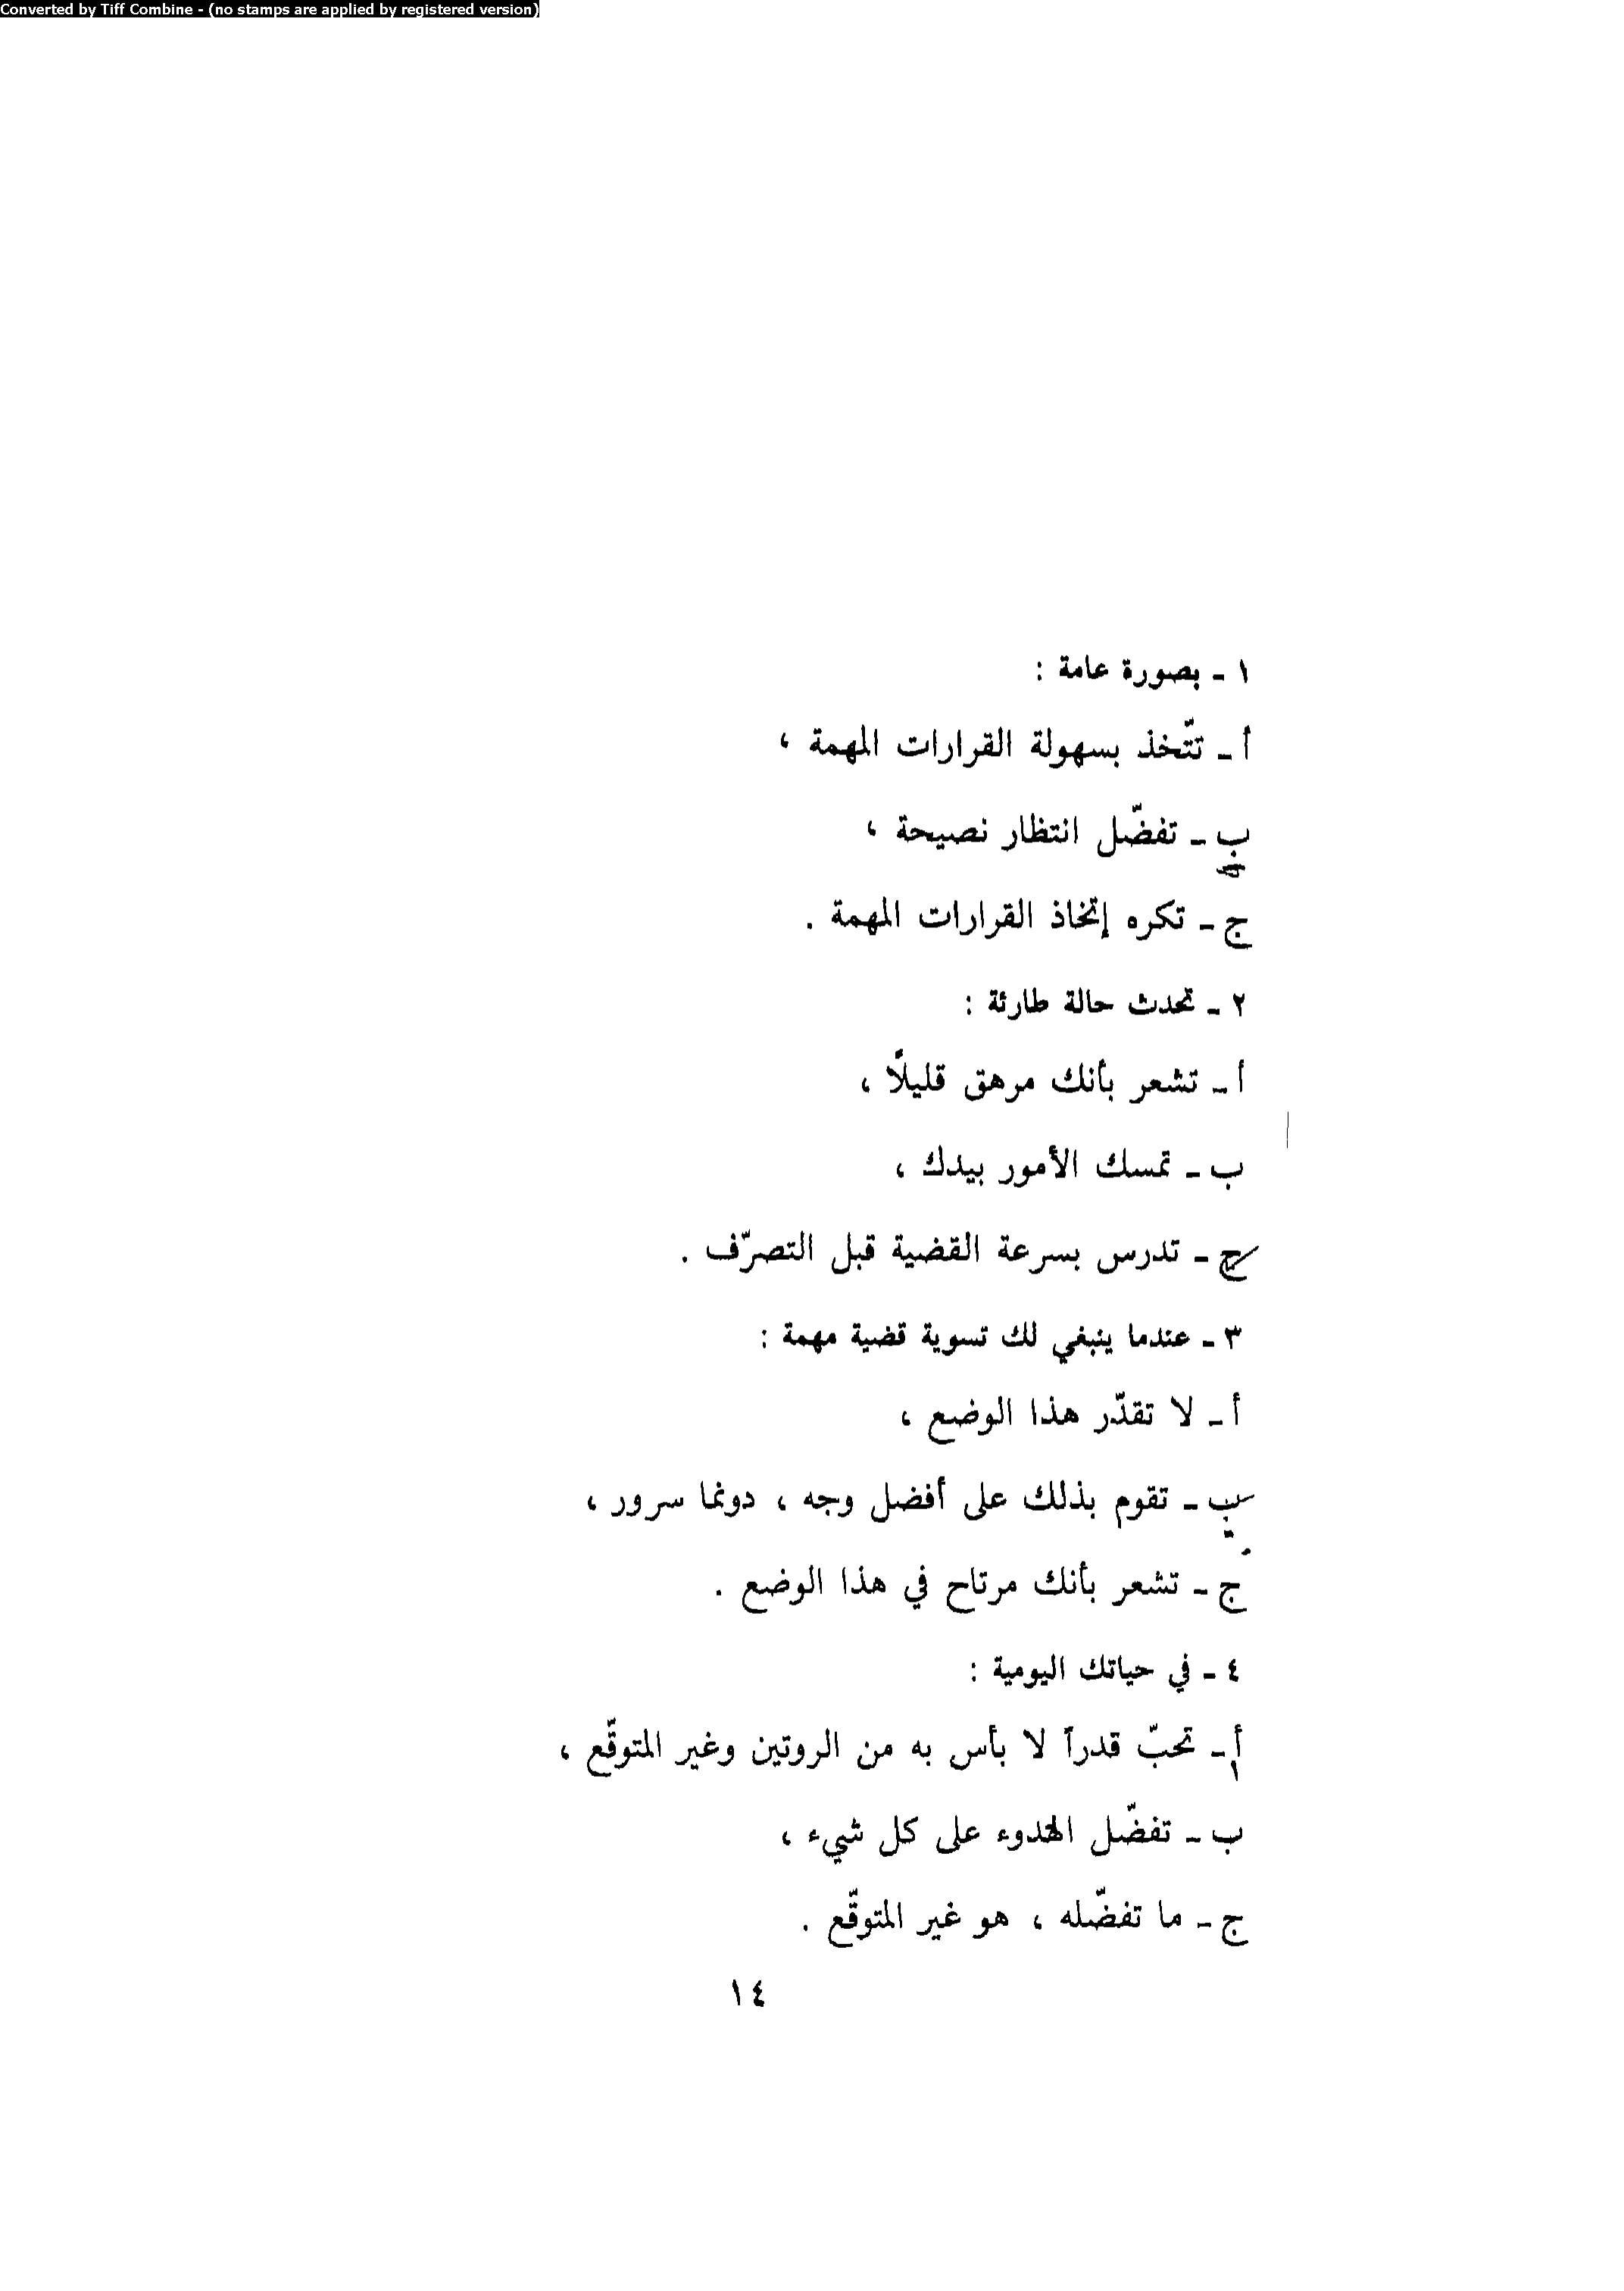 Converted by Tiff Combine - (no stamps are applied by registered version)
١ - بصورة عامة :
أ - تتّخذ بسهولة القرارات المهمة ،
ب - تفضّل انتظار نصيحة ،
ج - تكره إتخاذ القرارات المهمة .
٢ - تحدث حالة طارئة :
أ - تشعر بأنك مرهق قليلًا ،
ب - تمسك الأمور بيدك ،
ج - تدرس بسرعة القضية قبل التصرّف .
٣ - عندما ينبغي لك تسوية قضية مهمة :
أ - لا تقدّر هذا الوضع ،
ب - تقوم بذلك على أفضل وجه ، دونما سرور ،
ج - تشعر بأنك مرتاح في هذا الوضع .
٤ - في حياتك اليومية :
أ - تحبّ قدراً لا بأس به من الروتين وغير المتوقّع ،
ب - تفضّل الهدوء على كل شيء ،
ج - ما تفضّله ، هو غير المتوقّع .
١٤